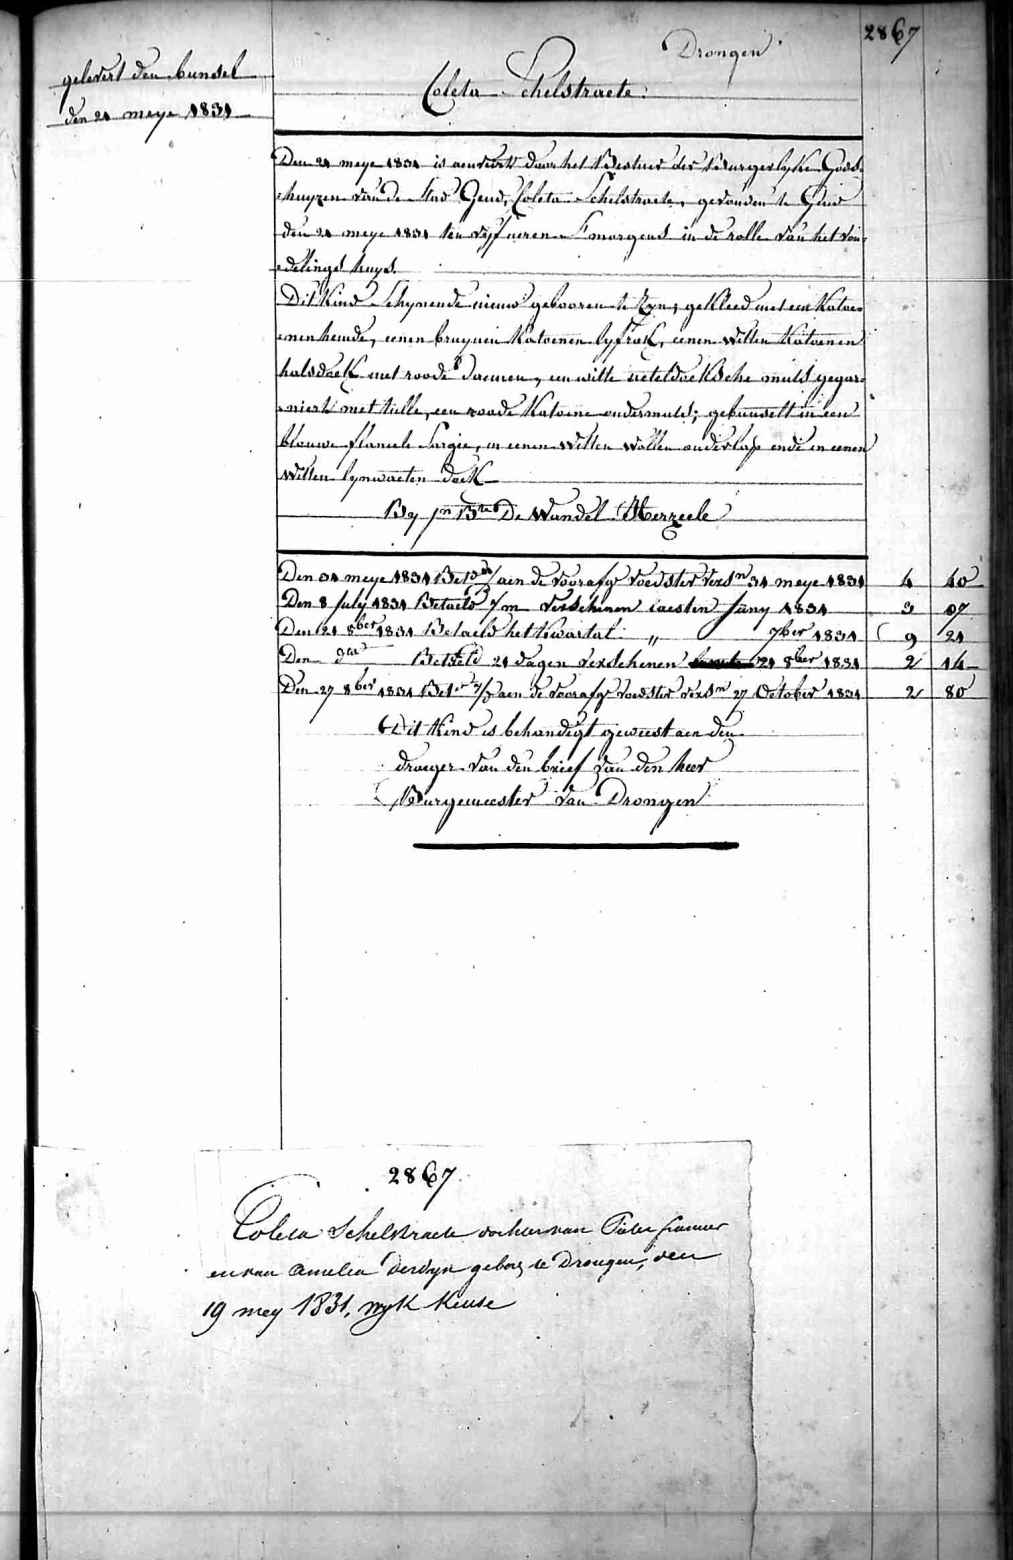 2867
Drongen
gelevert den bunsel
den 21 meye 1831
Coleta Schelstraete.
Den 21 meye 1831 is aenveirt door het Bestuer der Burgerlyke Gods-
-huyzen van de Stad Gend, Coleta Schelstraete, gevonden te Gend
den 21 meye 1831 ten vyf ueren Smorgens in de rolle van het von-
-delings huys.
Dit Kind Schynende nieuw gebooren te Zyn, gekleed met een Katoe-
-nen hemde, eenen bruynen Katoenen lyfrok, eenen witten Katoenen
halsdoek met roode daemen, een witte neteldoeksche muts gegar-
-niert met tulle, een roode Katoene ondermuts; gebunselt in een
blauwe flanele Sargie, en eenen witten wollen onderlap ende en eenen
witten lynwaeten doek
By De Wandel Herzeele
Den 31 meye 1831 Bet aen de voorafg voedster versn 31 meye 1831 4 40
Den 8 July 1831 Betaeld 1/m verschenen laesten Juny 1831 3 07
Den 21 8ber 1831 Betaeld het Kwartal „ 7ber 1831 9 21
Den do Betaeld 21 dagen verschenen 21 8ber 1831 2 14
Den 27 8ber 1831 Bet aen de voorafg voedster versn 27 October 1831 2 80
Dit Kind is behandigt geweest aen den
draeger van den brief van den heer
Burgemeester van Drongen
2867
Coleta Schelstraete dochter van Pieter
en van Amelia derdyn gebor te Drongen, den
19 mey 1831, wyk Keuse